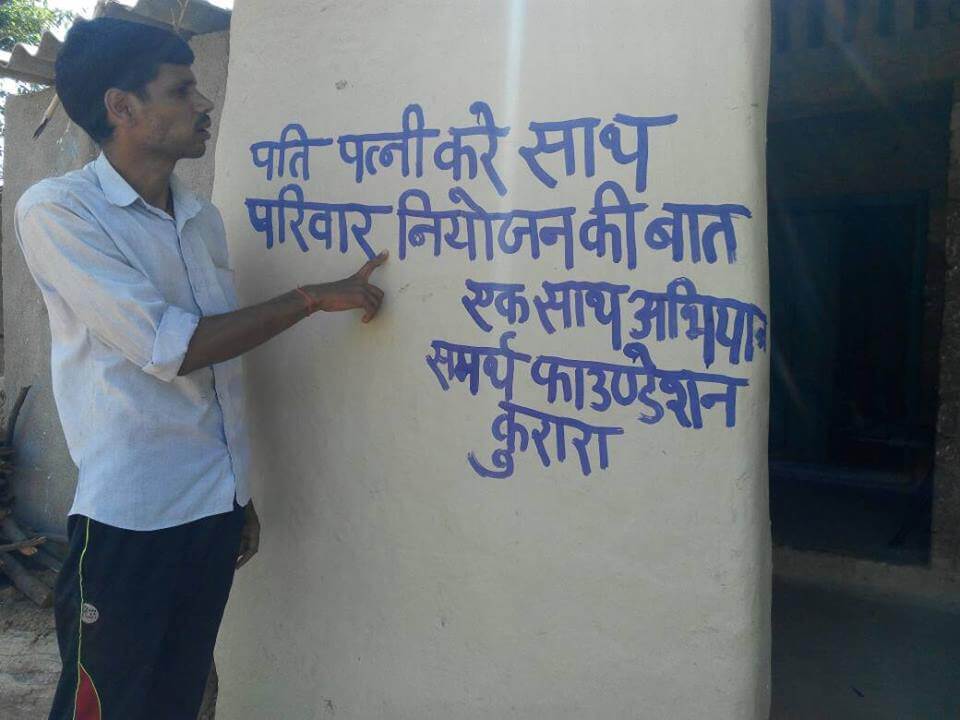 पति पत्नी करे साथ
परिवार नियोजन की बात
एक साथ अभियान
समर्थ फाउण्डेशन
कुरारा